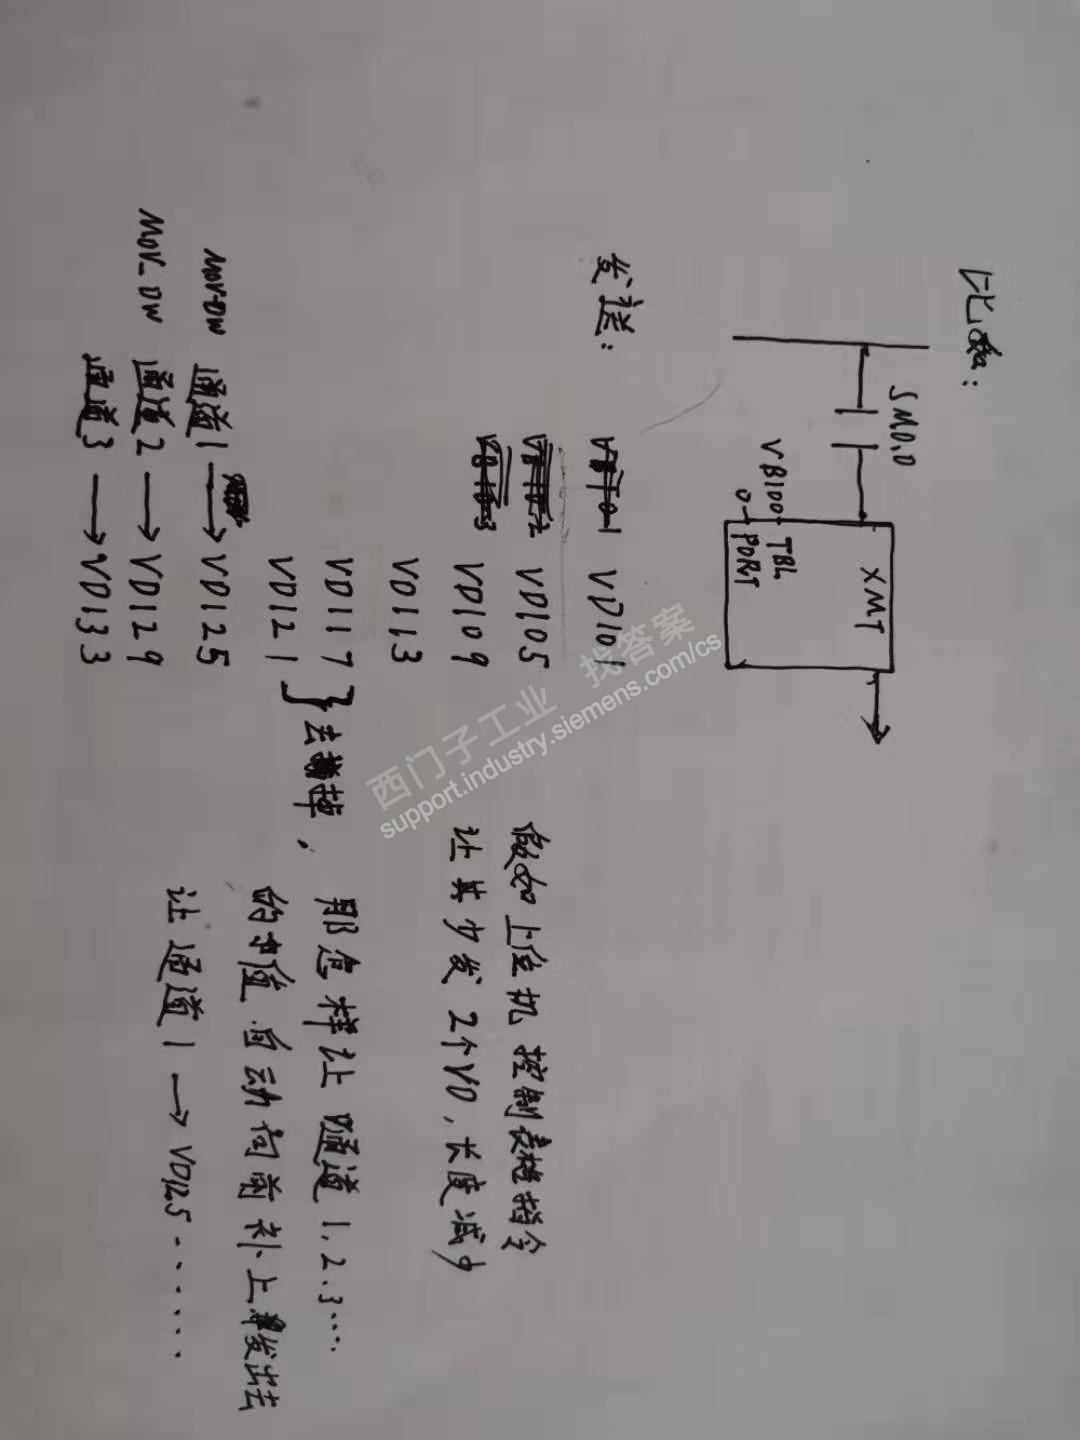 比如：
SM0.0
XMT
VB100 TBL
0 PORT
发送：
VD101
VD105
VD109
VD113
VD117
VD121
} 去掉，
MOV-DW 通道1 → VD125
MOV-DW 通道2 → VD129
通道3 → VD133
假如上位机控制指令
让其少发2个VD，长度减少
那怎样让通道1.2.3....
的值自动向前补上发出去
让通道1 → VD125.......
西门子工业 找答案
support.industry.siemens.com/cs